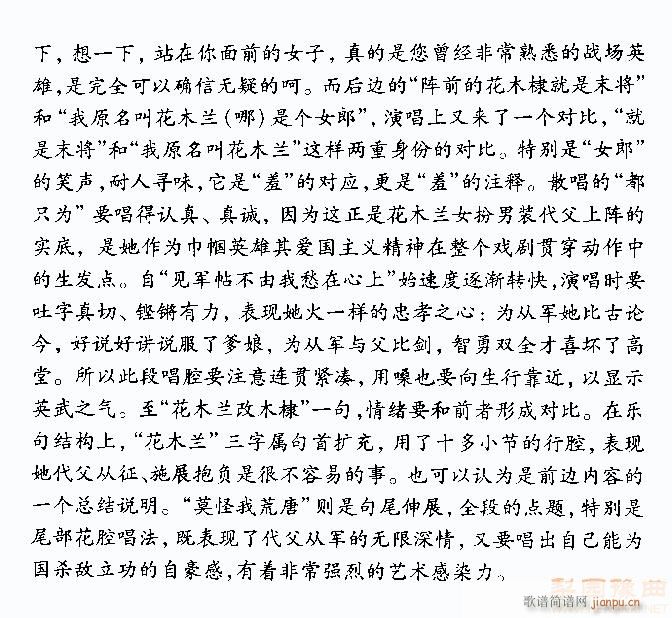 下，想一下，站在你面前的女子，真的是您曾经非常熟悉的战场英
雄，是完全可以确信无疑的呵。而后边的“阵前的花木棣就是末将”
和“我原名叫花木兰(哪)是个女郎”，演唱上又来了一个对比，“就
是末将”和“我原名叫花木兰”这样两重身份的对比。特别是“女郎”
的笑声，耐人寻味，它是“羞”的对应，更是“羞”的注释。散唱的“都
只为”要唱得认真、真诚，因为这正是花木兰女扮男装代父上阵的
实底，是她作为巾帼英雄其爱国主义精神在整个戏剧贯穿动作中
的生发点。自“见军帖不由我愁在心上”始速度逐渐转快，演唱时要
吐字真切、铿锵有力，表现她火一样的忠孝之心；为从军她比古论
今，好说好讲说服了爹娘，为从军与父比剑，智勇双全才喜坏了高
堂。所以此段唱腔要注意连贯紧凑，用嗓也要向生行靠近，以显示
英武之气。至“花木兰改木棣”一句，情绪要和前者形成对比。在乐
句结构上，“花木兰”三字属句首扩充，用了十多小节的行腔，表现
她代父从征、施展抱负是很不容易的事。也可以认为是前边内容的
一个总结说明。“莫怪我荒唐”则是句尾伸展，全段的点题，特别是
尾部花腔唱法，既表现了代父从军的无限深情，又要唱出自己能为
国杀敌立功的自豪感，有着非常强烈的艺术感染力。
梨园豫曲
歌谱简谱网 jianpu.cn